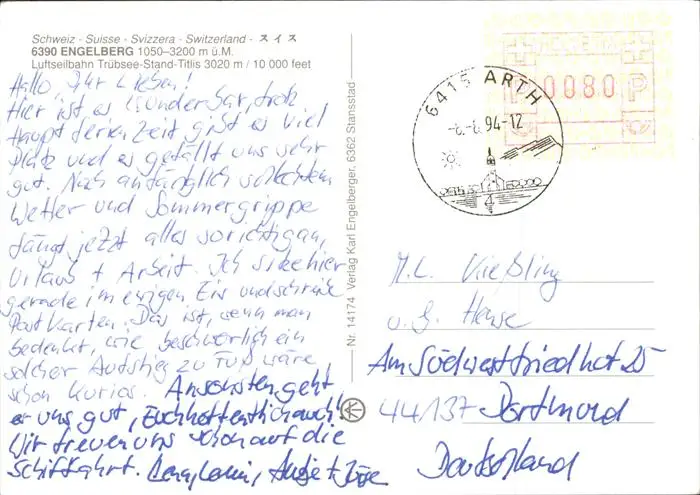 Schweiz - Suisse - Svizzera - Switzerland - スイス
6390 ENGELBERG 1050–3200 m ü.M.
Luftseilbahn Trübsee-Stand-Titlis 3020 m / 10 000 feet
Hallo, Ihr Lieben!
Hier ist es wunderbar, trotz
Hauptferienzeit gibt es viel
Platz und es gefällt uns sehr
gut. Nach anfänglich schlechtem
Wetter und Sommergrippe
fängt jetzt alles so richtig an,
Urlaub + Arbeit. Ich sitze hier
gerade im ewigen Eis und schreibe
Postkarten. Das ist, wenn man
bedenkt, wie beschwerlich ein
solcher Aufstieg zu Fuß wäre
schon kurios. Ansonsten geht
es uns gut, Euch hoffentlich auch!
Wir freuen uns schon auf die
Schiffahrt.
Nr. 14174 Verlag Karl Engelberger, 6362 Stansstad
HELVETIA
0080
P P
6415 ARTH
94-12
M.L. Kießling
u. G. Hense
Am Südwestfriedhof 25
44137 Dortmund
Deutschland